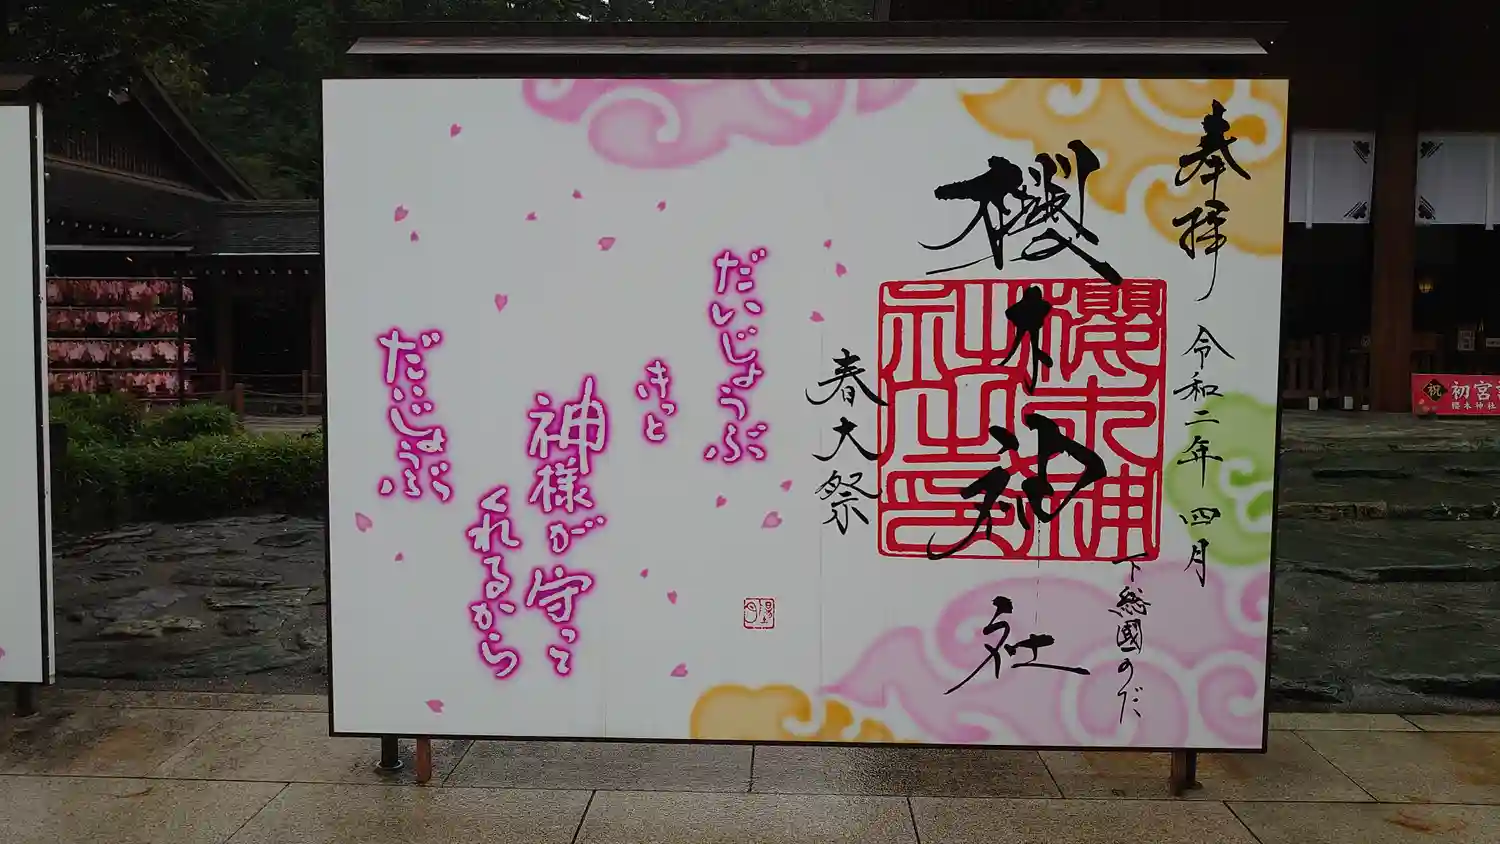 奉拝
令和二年 四月
下総國のだ
櫻木神社
櫻木神
社之印
春大祭
だいじょうぶ
きっと
神様が守って
くれるから
だいじょうぶ
祝
初宮
櫻木神社